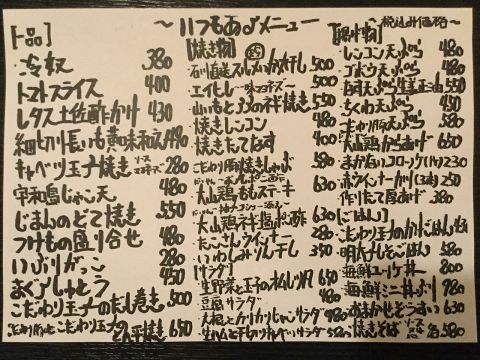 〜いつもあるメニュー〜
税込み価格〜
[一品]
冷奴 380
トマトスライス 400
レタス土佐酢かけ 430
細切り長いも黄味和え 490
キャベツ玉子焼き ソースマヨネーズ 280
宇和島じゃこ天 480
じまんのどて焼き 550
つけもの盛り合せ 480
いぶりがっこ 280
まぐろしゅとう 450
こだわり玉子のだし巻き 500
こだわり玉子 とん平焼き 650
[焼き物]
石川直送スルメいか丸干し 500
エイヒレ 一味マヨネーズ 500
山いもとろろのネギ焼き 550
焼きレンコン 480
焼きたてなす 400
こだわり豚焼きしゃぶ
大山鶏ももステーキ
大山鶏ネギ塩ポン酢 630
たこさんウインナー 280
いわしみりん干し 350
[サラダ]
生野菜と玉子の 650
豆腐サラダ
大根とカリカリじゃこサラダ 480
サラダ 580
レンコン天ぷら 480
ゴボウ天ぷら 480
550
ちくわ天ぷら 450
天ぷら 580
大山鶏からあげ 650
まかないコロッケ 230
赤ウインナーカツ(3本) 250
作りたて厚あげ 380
[ごはん]
こだわり玉子のかけごはん 430
明太子しそごはん 580
海鮮ユッケ丼 800
海鮮ミニ丼ぶり 980
おまかせぞうすい 630
焼きそば 各580